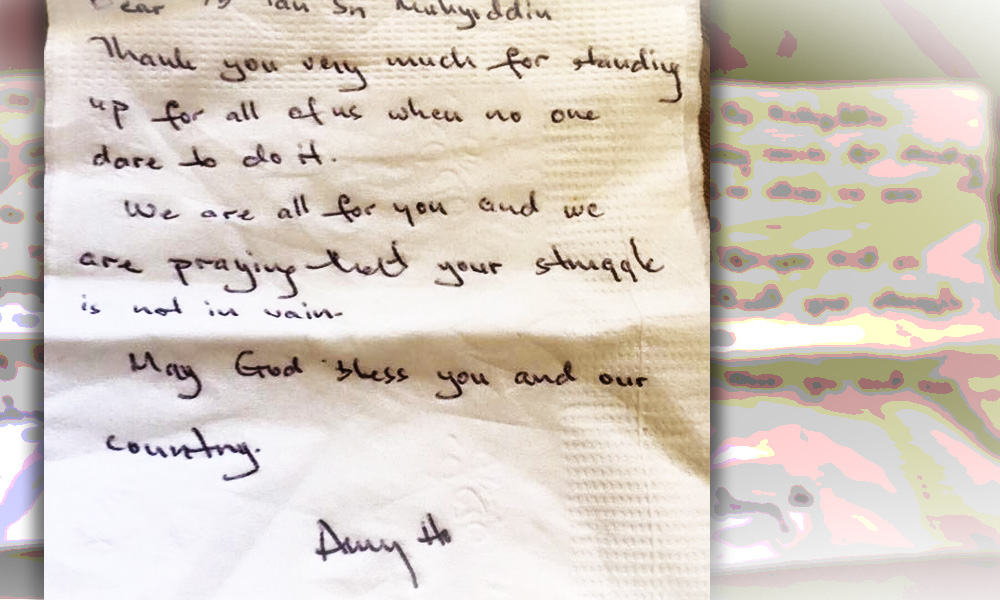 Dear TS Tan Sri Muhyiddin
Thank you very much for standing
up for all of us when no one
dare to do it.
We are all for you and we
are praying that your struggle
is not in vain.
May God bless you and our
country.
Amy Ho